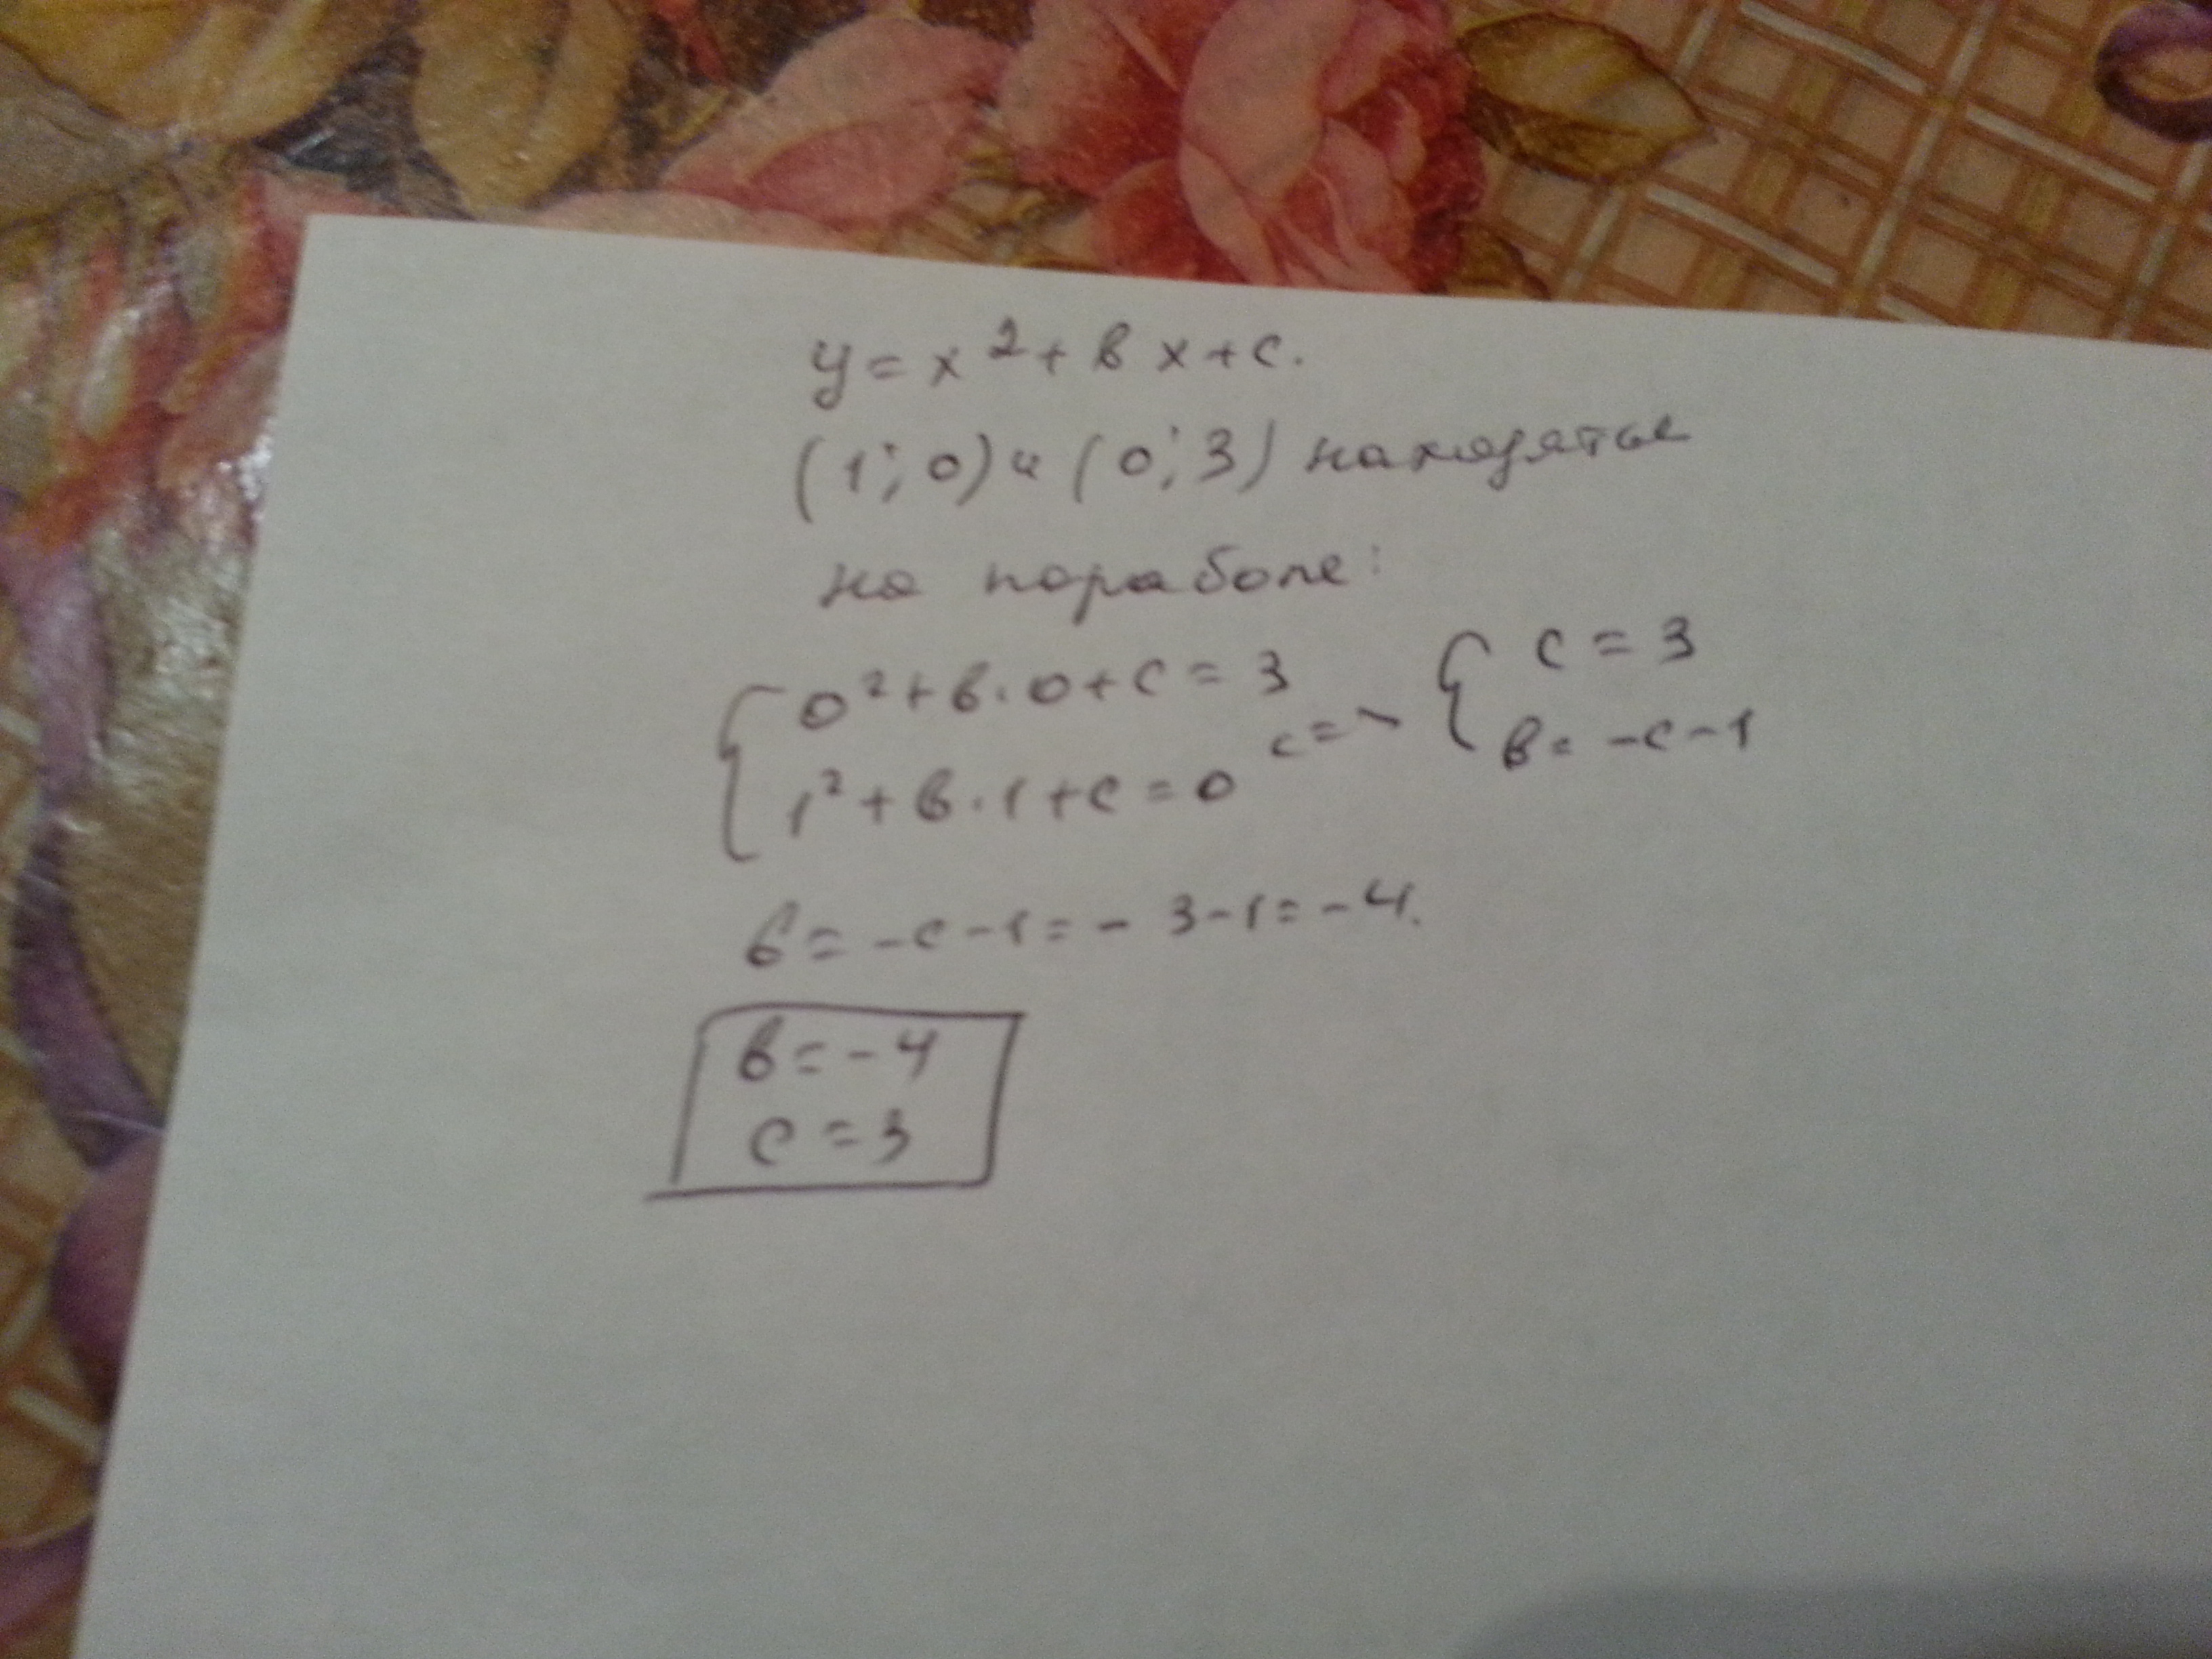 y = x² + bx + c.
(1; 0) и (0; 3) находятся
на параболе:
{ 0² + b · 0 + c = 3
{ 1² + b · 1 + c = 0
<=> { c = 3
{ b = -c - 1
b = -c - 1 = - 3 - 1 = - 4.
b = - 4
c = 3